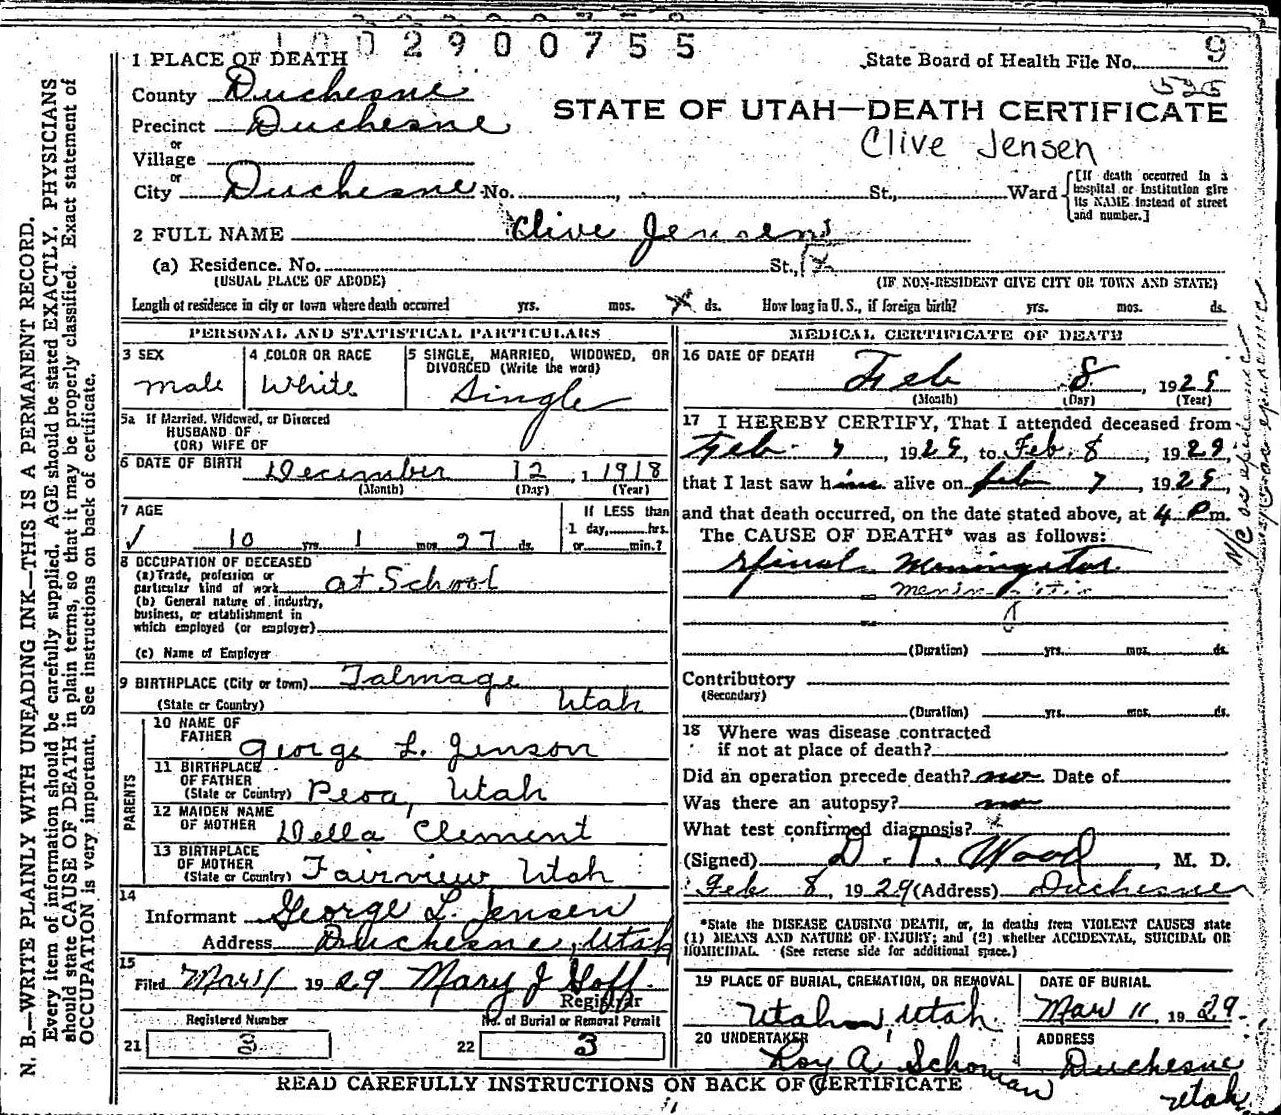 10029 00755
9
1 PLACE OF DEATH
State Board of Health File No.
525
County Duchesne
STATE OF UTAH—DEATH CERTIFICATE
Precinct Duchesne
Clive Jensen
or
Village
or
City Duchesne No. St., Ward
[If death occurred in a hospital or institution give its NAME instead of street and number.]
2 FULL NAME Clive Jensen
(a) Residence. No. St.,
(USUAL PLACE OF ABODE) (IF NON-RESIDENT GIVE CITY OR TOWN AND STATE)
Length of residence in city or town where death occurred yrs. mos. ds. How long in U.S., if foreign birth? yrs. mos. ds.
PERSONAL AND STATISTICAL PARTICULARS
3 SEX
male
4 COLOR OR RACE
White
5 SINGLE, MARRIED, WIDOWED, OR
DIVORCED (Write the word)
Single
5a If Married, Widowed, or Divorced
HUSBAND OF
(OR) WIFE OF
6 DATE OF BIRTH December 12, 1918
(Month) (Day) (Year)
7 AGE
If LESS than
1 day, hrs.
or min.?
10 yrs. 1 mos. 27 ds.
8 OCCUPATION OF DECEASED
(a) Trade, profession or
particular kind of work at School
(b) General nature of industry,
business, or establishment in
which employed (or employer)
(c) Name of Employer
9 BIRTHPLACE (City or town) Talmage
(State or Country) Utah
PARENTS
10 NAME OF
FATHER George L. Jenson
11 BIRTHPLACE
OF FATHER
(State or Country) Peoa, Utah
12 MAIDEN NAME
OF MOTHER Della Clement
13 BIRTHPLACE
OF MOTHER
(State or Country) Fairview Utah
14
Informant George L. Jensen
Address Duchesne, Utah
15
Filed Mar 11 1929 Mary J Goff
Registrar
Registered Number No. of Burial or Removal Permit
21 22 3
MEDICAL CERTIFICATE OF DEATH
16 DATE OF DEATH
Feb 8, 1929
(Month) (Day) (Year)
17 I HEREBY CERTIFY, That I attended deceased from
Feb. 7, 1929, to Feb. 8, 1929,
that I last saw him alive on feb 7, 1929,
and that death occurred, on the date stated above, at 4 P m.
The CAUSE OF DEATH* was as follows:
Spinal
(Duration) yrs. mos. ds.
Contributory
(Secondary)
(Duration) yrs. mos. ds.
18 Where was disease contracted
if not at place of death?
Did an operation precede death? no Date of
Was there an autopsy? no
What test confirmed diagnosis?
(Signed) D. T. Wood, M. D.
Feb 8, 1929 (Address) Duchesne
*State the DISEASE CAUSING DEATH, or, in deaths from VIOLENT CAUSES state
(1) MEANS AND NATURE OF INJURY; and (2) whether ACCIDENTAL, SUICIDAL OR
HOMICIDAL. (See reverse side for additional space.)
19 PLACE OF BURIAL, CREMATION, OR REMOVAL
Utahn, Utah.
DATE OF BURIAL
Mar 11, 1929.
20 UNDERTAKER
Roy A. Schonian
ADDRESS
Duchesne
Utah
READ CAREFULLY INSTRUCTIONS ON BACK OF CERTIFICATE
N. B.—WRITE PLAINLY WITH UNFADING INK—THIS IS A PERMANENT RECORD.
Every item of information should be carefully supplied. AGE should be stated EXACTLY. PHYSICIANS
should state CAUSE OF DEATH in plain terms, so that it may be properly classified. Exact statement of
OCCUPATION is very important. See instructions on back of certificate.